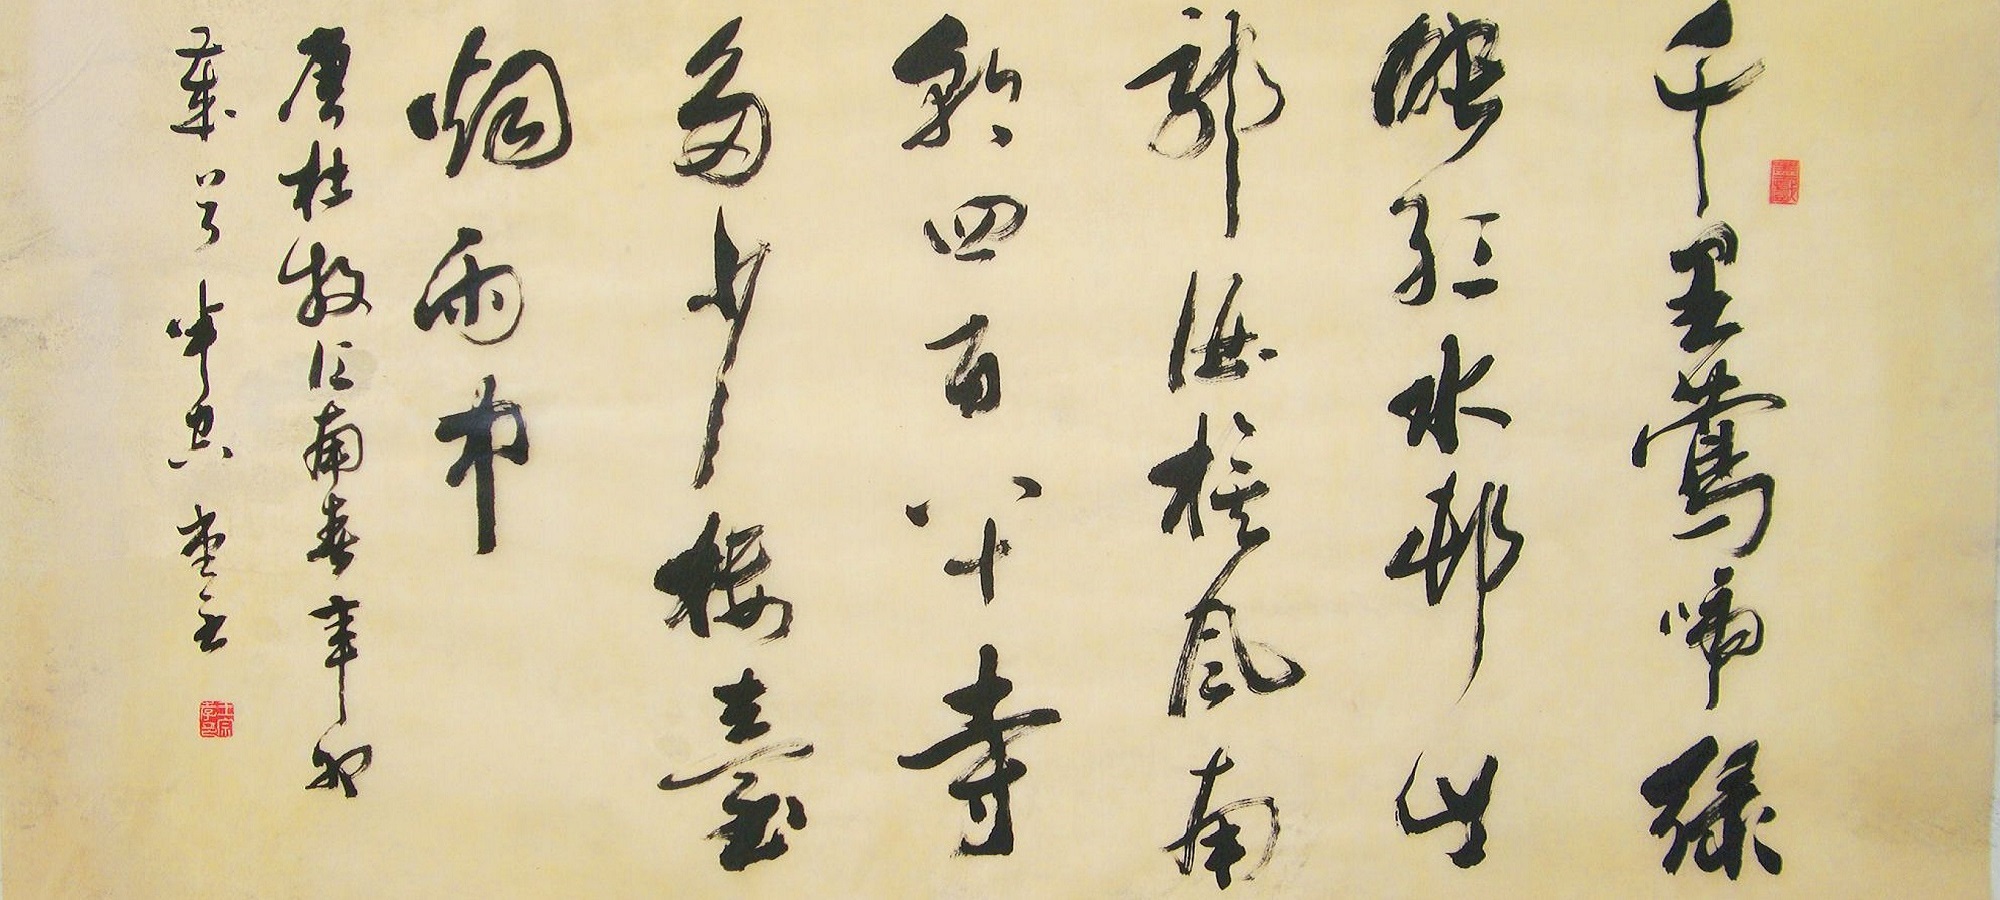 千里鶯啼綠
映紅水邨山
郭酒旗風南
朝四百八十寺
多少樓臺
烟雨中
唐杜牧江南春辛卯